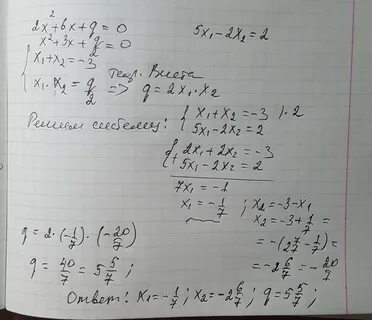 2x² + 6x + q = 0
5x₁ - 2x₂ = 2
x² + 3x + q/2 = 0
{ x₁ + x₂ = -3
x₁ · x₂ = q/2 => q = 2x₁ · x₂
Теор. Виета
Решим систему: { x₁ + x₂ = -3 | · 2
5x₁ - 2x₂ = 2
+ { 2x₁ + 2x₂ = -3
5x₁ - 2x₂ = 2
7x₁ = -1
x₁ = -1/7 ; x₂ = -3 - x₁
x₂ = -3 + 1/7 =
= -(2 7/7 - 1/7) =
= -2 6/7 = -20/7
q = 2 · (-1/7) · (-20/7)
q = 40/7 = 5 5/7 ;
Ответ: x₁ = -1/7 ; x₂ = -2 6/7 ; q = 5 5/7 ;